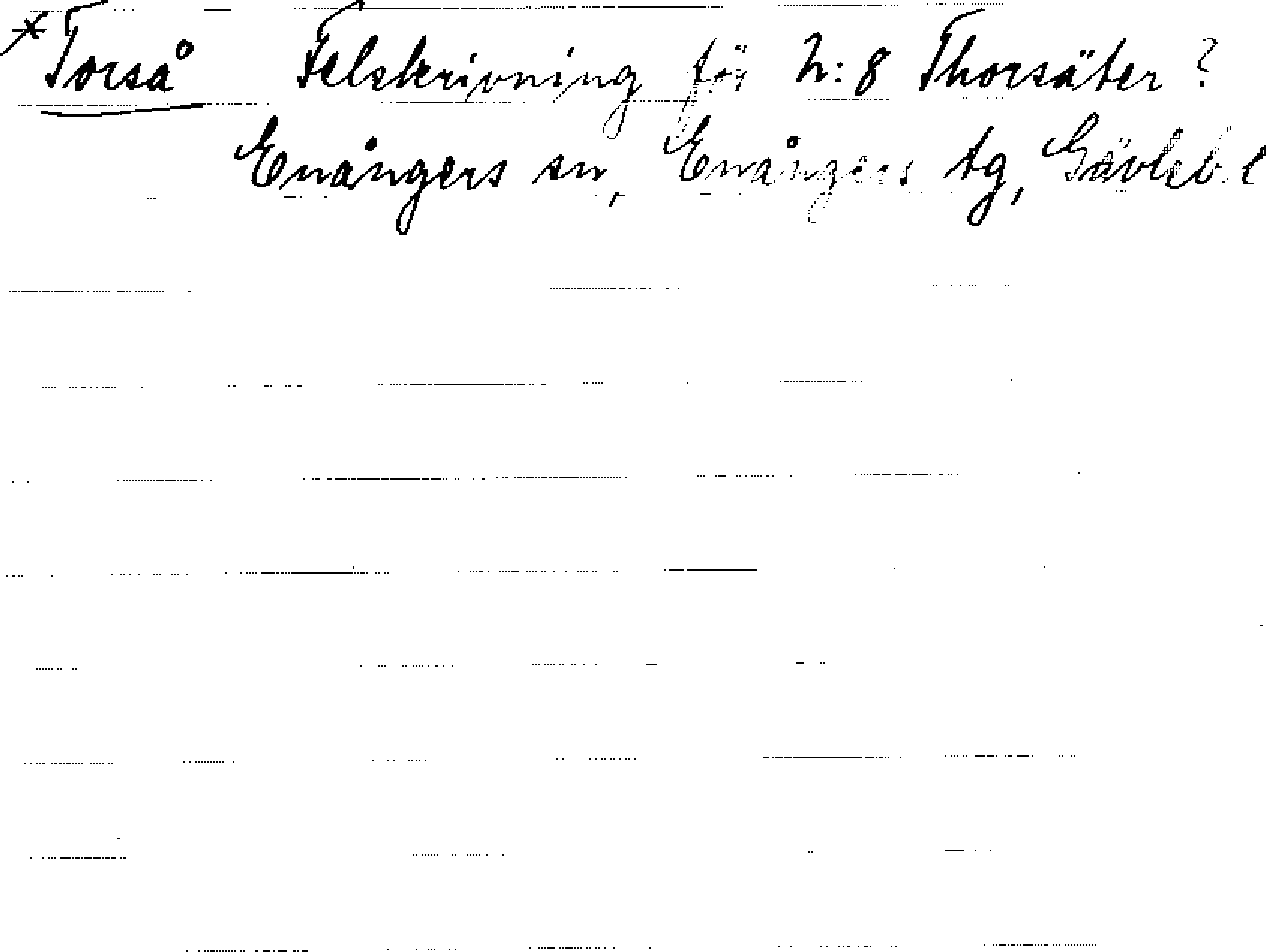 *Torså Felskrivning för 2:8 Thorsäter?
Enångers sn, Enångers tg, Gävleb. l